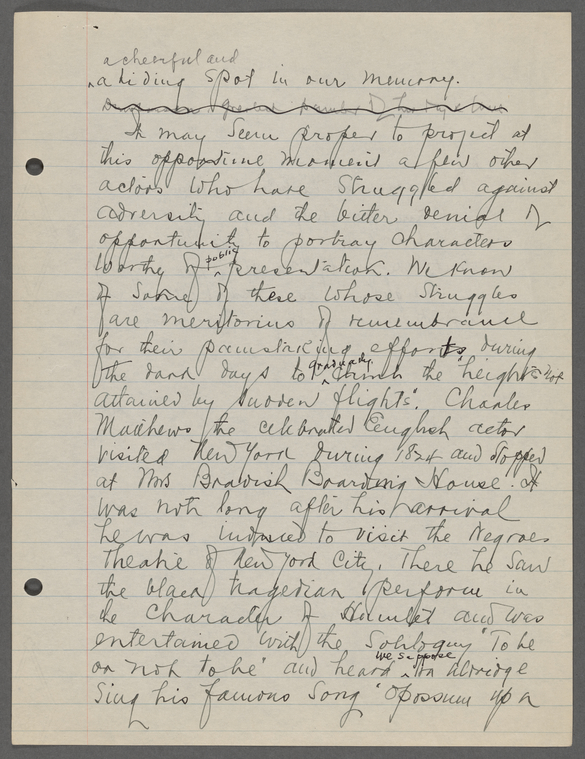 a cheerful and
abiding spot in our memory.
It may seem proper to project at
this opportune moment a few other
actors who have struggled against
adversity and the bitter denial of
opportunity to portray characters
worthy of public presentation. We know
of some of these whose struggles
are meritorius of remembrance
for their painstaking efforts during
the dark days to gradually climb the "heights not
attained by sudden flights". Charles
Mathews the celebrated English actor
visited New York during 1824 and stopped
at Mrs Bradish Boarding House. It
was noth long after his arrival
he was induced to visit the Negroes
Theatre of New York City. There he saw
the black tragedian perform in
the Character of Hamlet and was
entertained with the Soliloquy "To be
or not to be" and heard we suppose Ira Aldridge
sing his famous song "Opossum up a